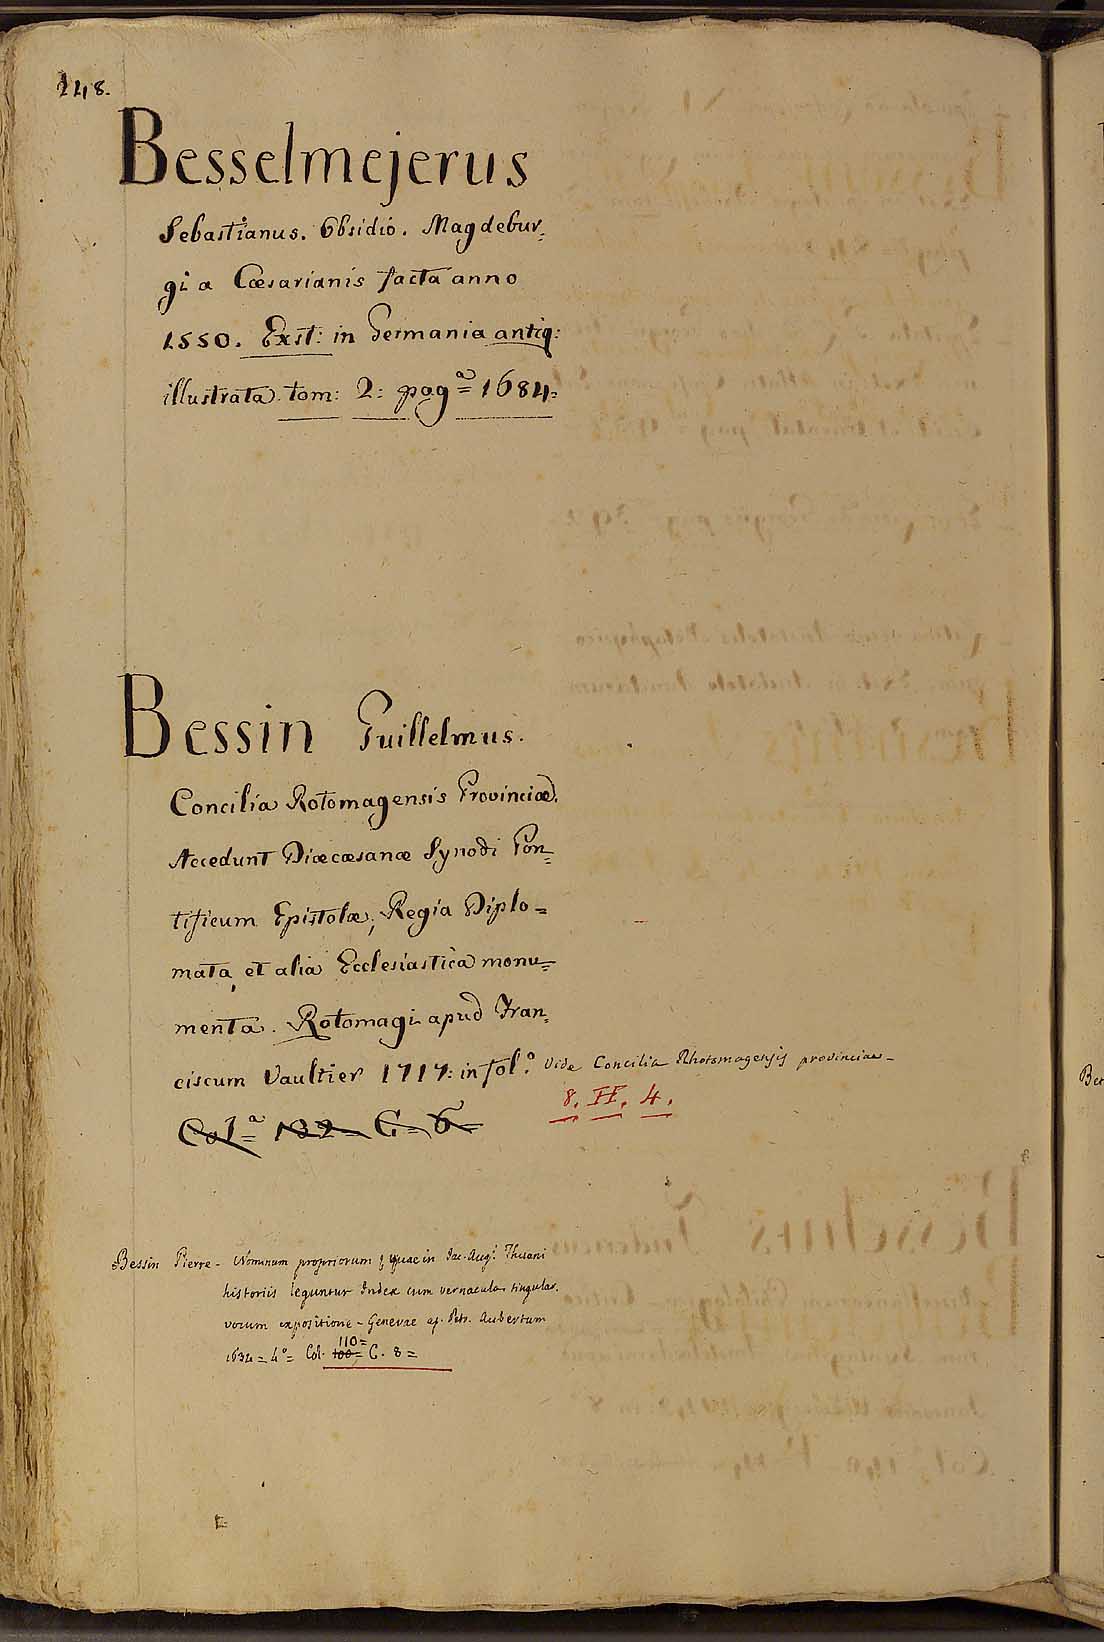 248.
Besselmejerus
Sebastianus. Obsidio. Magdebur=
gi a Cæsarianis facta anno
1550. Exst: in Germania antiq:
illustrata tom: 2: pagª= 1684=
Bessin Guillelmus.
Concilia Rotomagensis Provinciæ.
Accedunt Diæcæsanæ Synodi Pon=
tificum Epistolæ, Regia Diplo=
mata, et alia Ecclesiastica monu=
menta. Rotomagi apud Fran=
ciscum Vaultier 1717: in fol.º Vide Concilia Rhotomagensis provinciae-
8. II. 4.
Colª= 132= C= 6=
Bessin Pierre - Nominum propriorum, quae in Jac. Aug! Thuani
historiis leguntur Index cum vernacula singular.
vocum expositione - Genevae ap. Petr. Aubertum
110=
1634= 4º= Col. 100= C. 8=
Bes